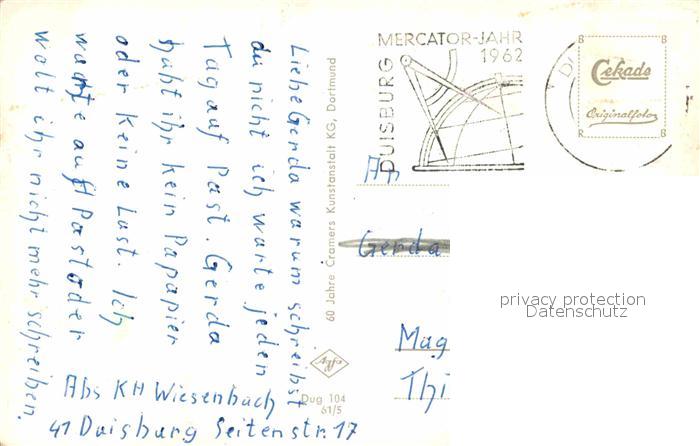 Liebe Gerda warum schreibst
du nicht ich warte jeden
Tag auf Past. Gerda
habt ihr kein Papapier
oder keine Lust. Ich
warte auf Past oder
wolt ihr nicht mehr schreiben.
Abs KH Wiesenbach
41 Duisburg Seitenstr. 17
60 Jahre Cramers Kunstanstalt KG, Dortmund
Agfa
Dug 104
61/5
DUISBURG
MERCATOR-JAHR
1962
B B
Cekade
Originalfoto
R R
An
Gerda
Mag
Thi
privacy protection
Datenschutz